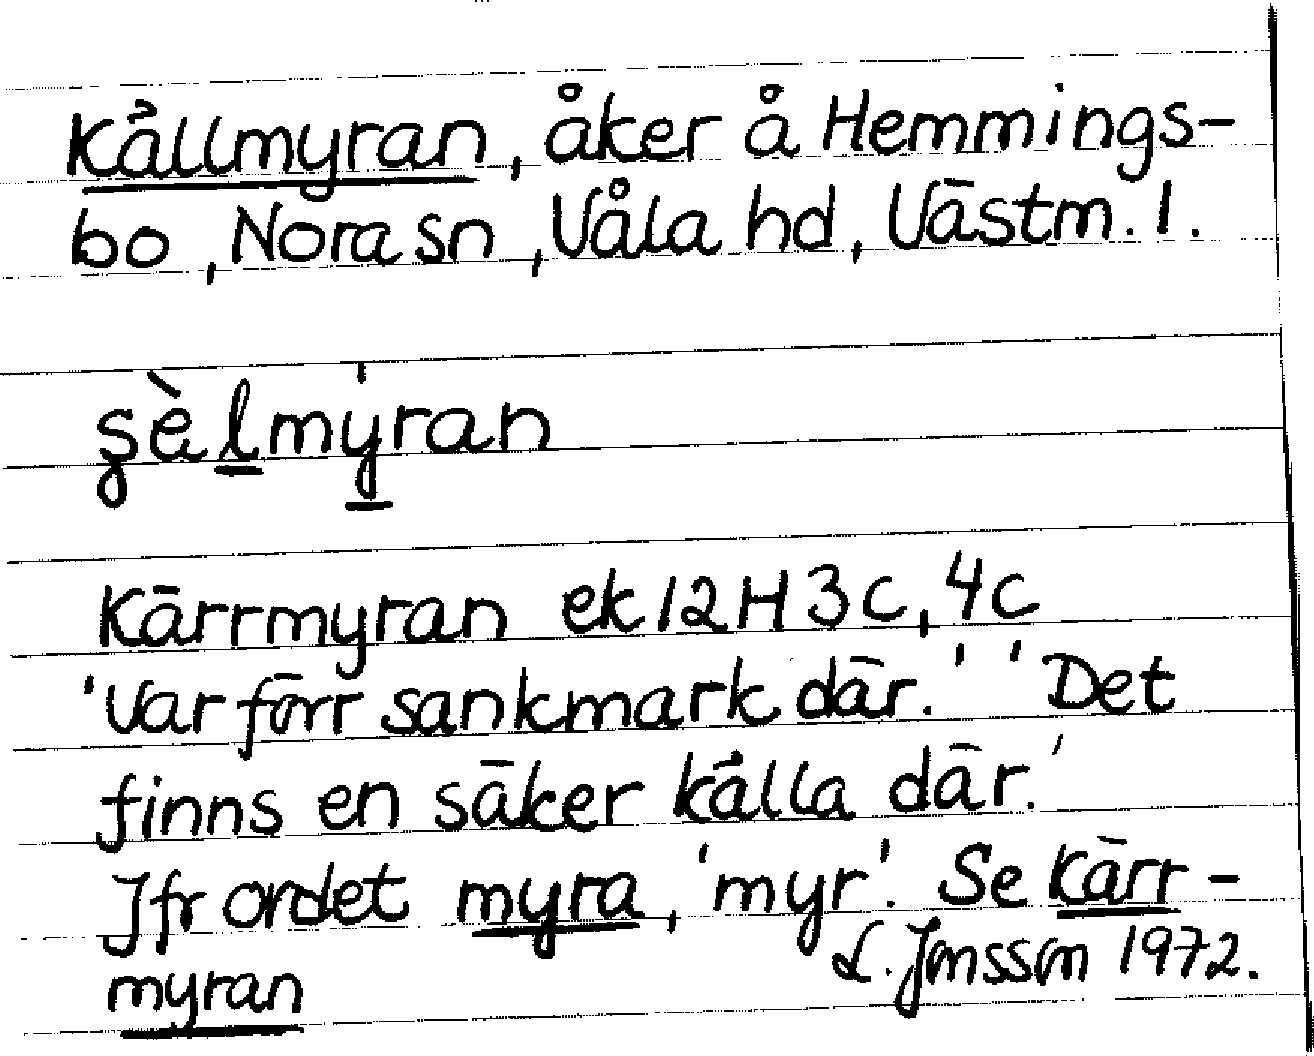 Källmyran, åker å Hemmings-
bo, Nora sn, Våla hd, Västm. l.
şèlmýran
Kärrmyran ek 12H 3c, 4c
'Var förr sankmark där.' 'Det
finns en säker källa där.'
Jfr ordet myra, 'myr'. Se Kärr-
myran
L. Jonsson 1972.